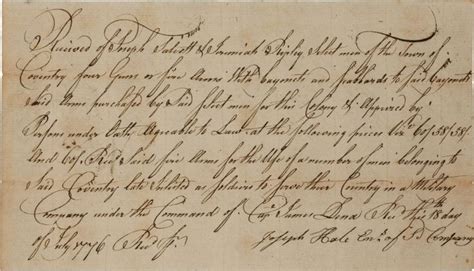 Received of Joseph Talcott & Jeremiah Ripley Select men of the Town of
Coventry four Guns or fire Arms with bayonets and scabbards to said bayonets
said Arms purchased by said Select men for this Colony & Apprized by
Persons under Oath Agreable to Law at the following prices 60/ 58/ 58/
And 60/ Said fire Arms for the Use of a number of men belonging to
said Coventry Inlisted as Soldiers to serve their Country in a Military
Company under the Command of Capt James Dana this 18th day
of July 1776
Joseph Hale Ens. of sd Company